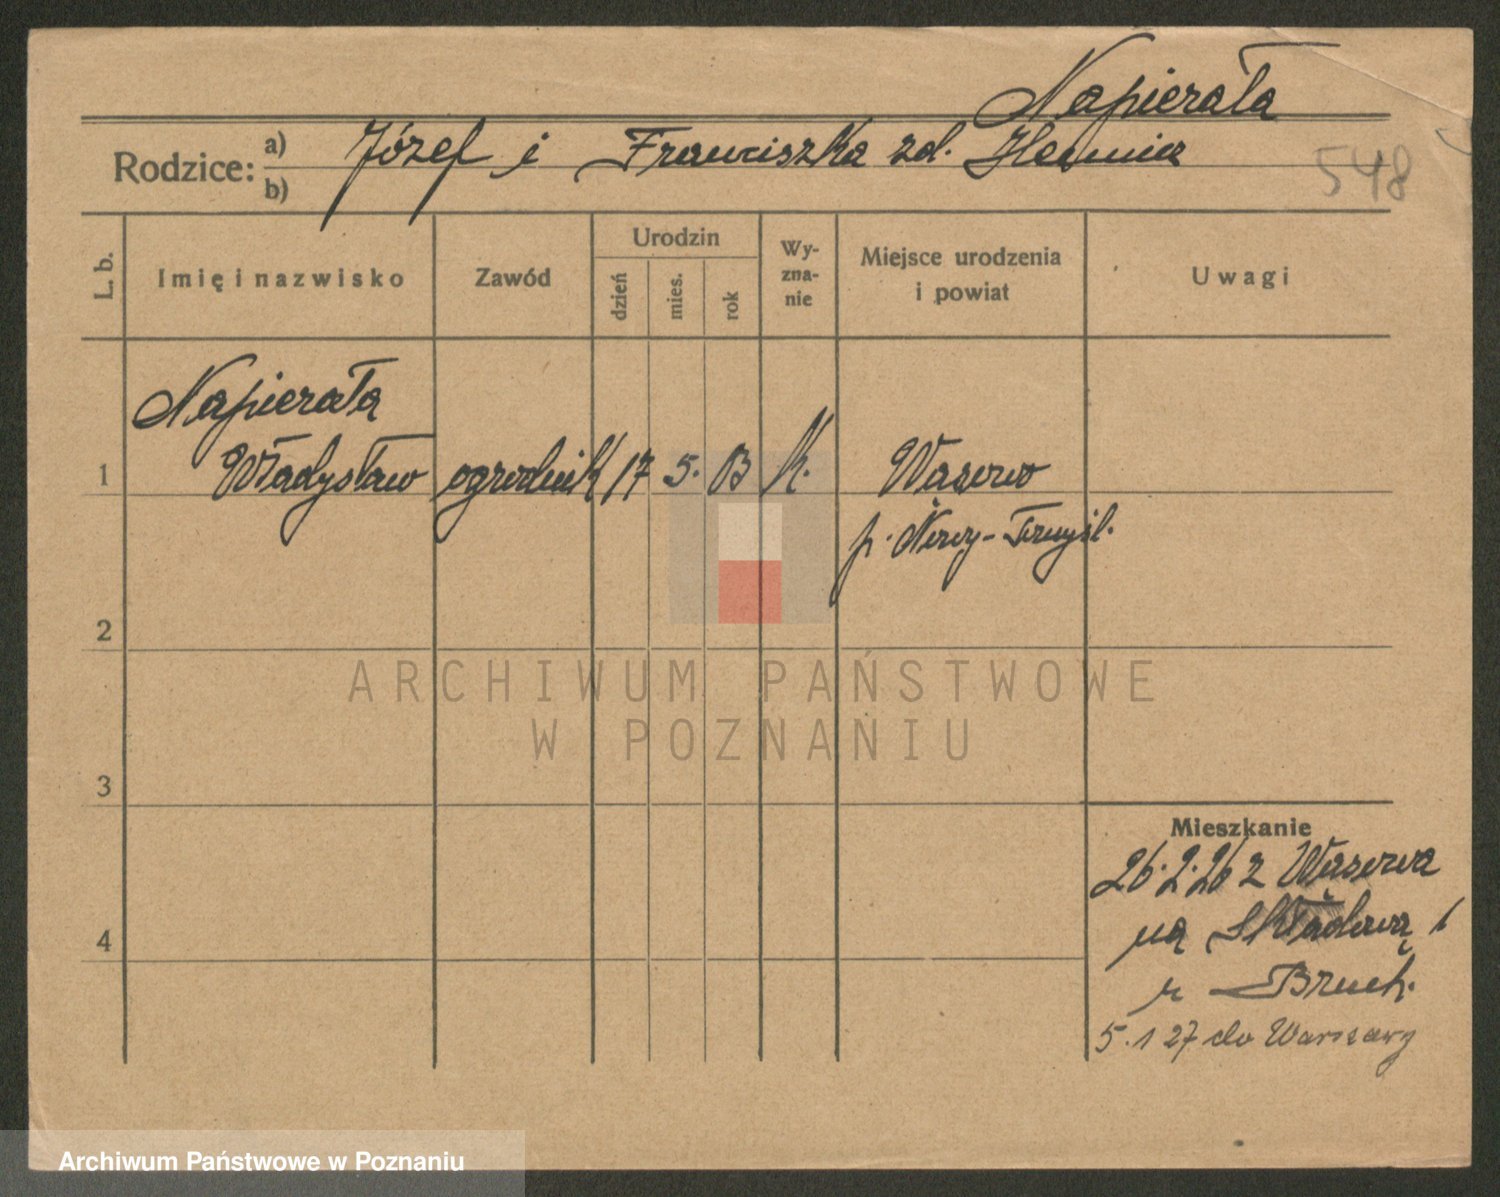 Napierała
Rodzice: a) b) Józef i Franciszka zd.
548
L. b.
Imię i nazwisko
Zawód
Urodzin
dzień
mies.
rok
Wy-
zna-
nie
Miejsce urodzenia
i powiat
Uwagi
Napierała
1 Władysław ogrodnik 17 5. K. Wąsowo
p. Nowy-Tomyśl.
2
3
4
ARCHIWUM PAŃSTWOWE
W POZNANIU
Mieszkanie
26.2.26 z Wąsowa
na Składową 1
u Bzuch.
5.1 27 do Warszawy
Archiwum Państwowe w Poznaniu